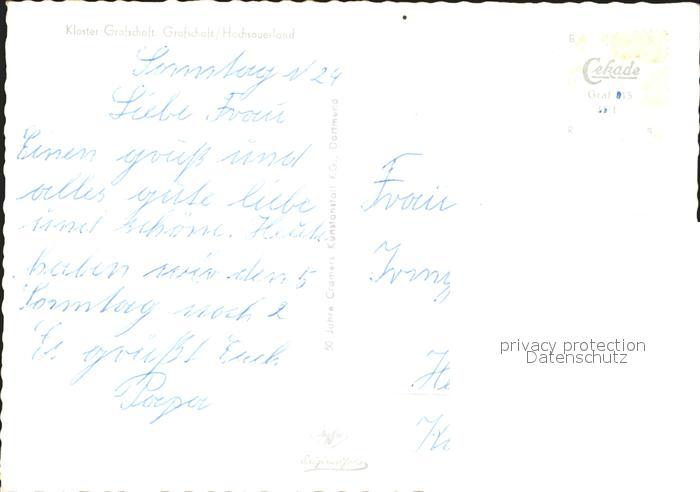 Kloster Grafschaft. Grafschaft/Hochsauerland
B
Cekade
Graf 815
R S
Sonntag 24
Liebe Frau
Einen gruß und
alles gute liebe
und schöne. Heute
haben wir den 5
Sonntag noch 2
Es grüßt Euch
Papa
50 Jahre Cramers Kunstanstalt KG., Dortmund
Frau
privacy protection
Datenschutz
He